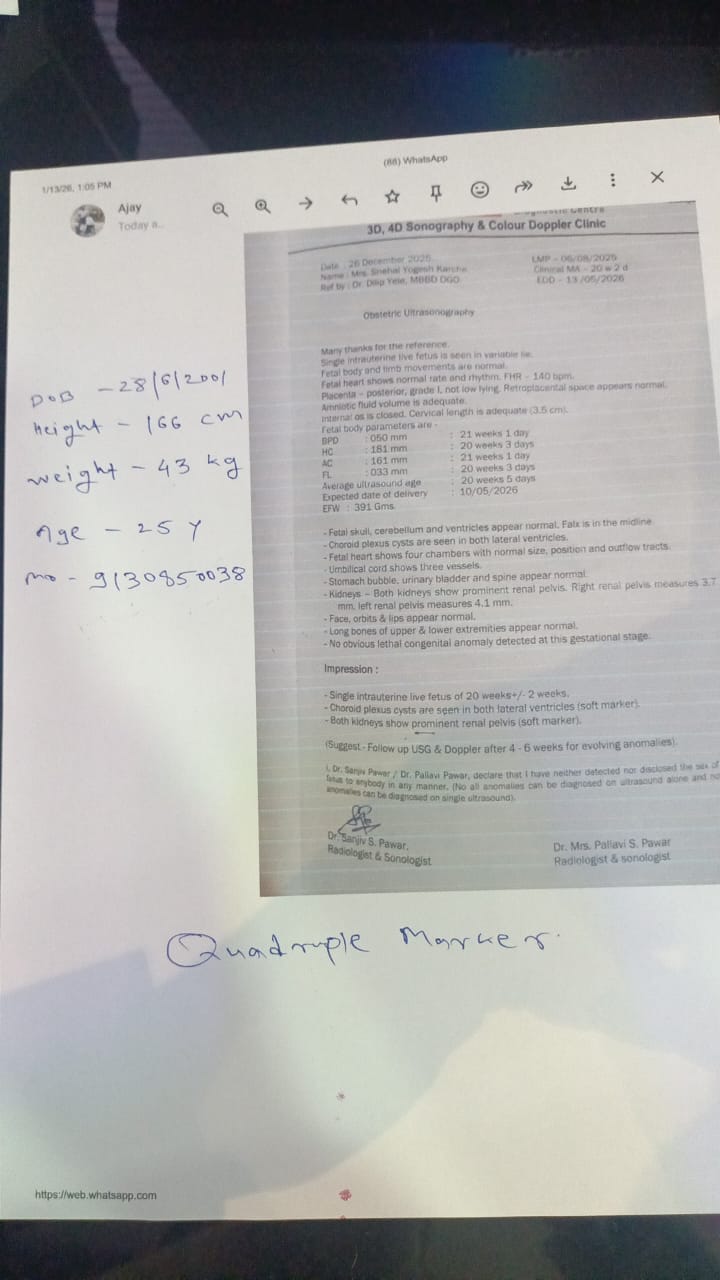 (66) WhatsApp
1/13/26, 1:05 PM
Ajay
Today a..
3D, 4D Sonography & Colour Doppler Clinic
Date : 26 December 2025
LMP - 06/08/2025
Name : Mrs. Snehal Yogesh
Clinical MA - 20 w 2 d
Ref by : Dr. Dilip Yele, MBBD DGO
EDD - 13 /05/2026
Obstetric Ultrasonography
Many thanks for the reference.
Single intrauterine live fetus is seen in variable lie.
Fetal body and limb movements are normal.
Fetal heart shows normal rate and rhythm. FHR - 140 bpm.
Placenta - posterior, grade I, not low lying. Retroplacental space appears normal.
Amniotic fluid volume is adequate.
Internal os is closed. Cervical length is adequate (3.5 cm).
Fetal body parameters are -
BPD : 050 mm : 21 weeks 1 day
HC : 181 mm : 20 weeks 3 days
AC : 161 mm : 21 weeks 1 day
FL : 033 mm : 20 weeks 3 days
Average ultrasound age : 20 weeks 5 days
Expected date of delivery : 10/05/2026
EFW : 391 Gms.
DOB - 28/6/2001
Height - 166 cm
weight - 43 kg
Age - 25 Y
mo - 9130850038
- Fetal skull, cerebellum and ventricles appear normal. Falx is in the midline.
- Choroid plexus cysts are seen in both lateral ventricles.
- Fetal heart shows four chambers with normal size, position and outflow tracts.
- Umbilical cord shows three vessels.
- Stomach bubble, urinary bladder and spine appear normal.
- Kidneys – Both kidneys show prominent renal pelvis. Right renal pelvis measures 3.7
mm, left renal pelvis measures 4.1 mm.
- Face, orbits & lips appear normal.
- Long bones of upper & lower extremities appear normal.
- No obvious lethal congenital anomaly detected at this gestational stage.
Impression :
- Single intrauterine live fetus of 20 weeks+/- 2 weeks.
- Choroid plexus cysts are seen in both lateral ventricles (soft marker).
- Both kidneys show prominent renal pelvis (soft marker).
(Suggest - Follow up USG & Doppler after 4 - 6 weeks for evolving anomalies).
I, Dr. Sanjiv Pawar / Dr. Pallavi Pawar, declare that I have neither detected nor disclosed the sex of
fetus to anybody in any manner. (No all anomalies can be diagnosed on ultrasound alone and no
anomalies can be diagnosed on single ultrasound).
Dr. Sanjiv S. Pawar,
Radiologist & Sonologist
Dr. Mrs. Pallavi S. Pawar
Radiologist & sonologist
Quadruple Marker.
https://web.whatsapp.com